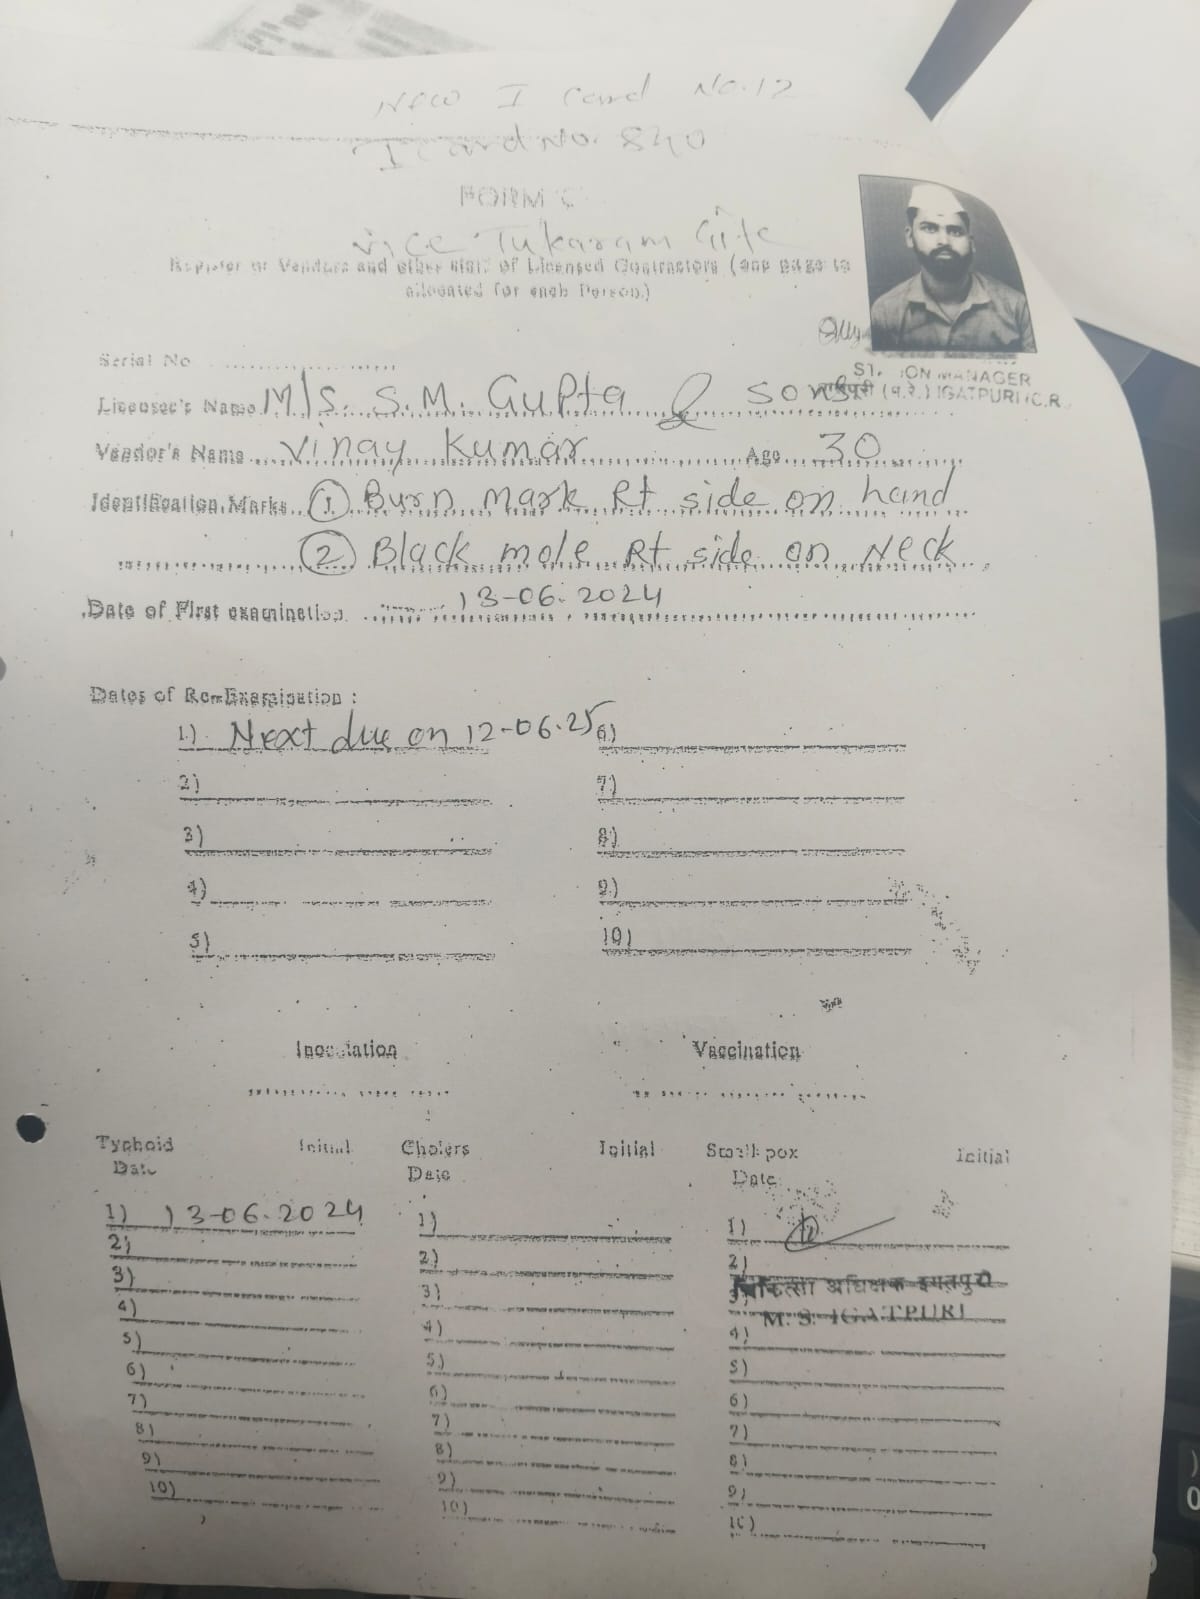 New I Card No. 12
I Card No. 840
FORM C
vice Tukaram Gite
Register of Vendors and other staff of Licensed Contractors (one page to
allocated for each Person.)
Serial No ..................
STATION MANAGER
इगतपुरी (म.रे.) IGATPURI (C.R.
Licensee's Name M/S. S.M. Gupta & sons
Vendor's Name Vinay Kumar Age 30
Identification Marks (1) Burn mark Rt side on hand
(2) Black mole Rt side on Neck
Date of First examination 13-06-2024
Dates of Re-Examination :
1) Next due on 12-06-25 6)
2) 7)
3) 8)
4) 9)
5) 10)
Inoculation Vaccination
Typhoid Initial Cholera Initial Small pox Initial
Date Date Date
1) 13-06-2024 1) 1)
2) 2) 2)
चिकित्सा अधिक्षक इगतपुरी
3) 3) 3)
M. S. IGATPURI
4) 4) 4)
5) 5) 5)
6) 6) 6)
7) 7) 7)
8) 8) 8)
9) 9) 9)
10) 10) 10)